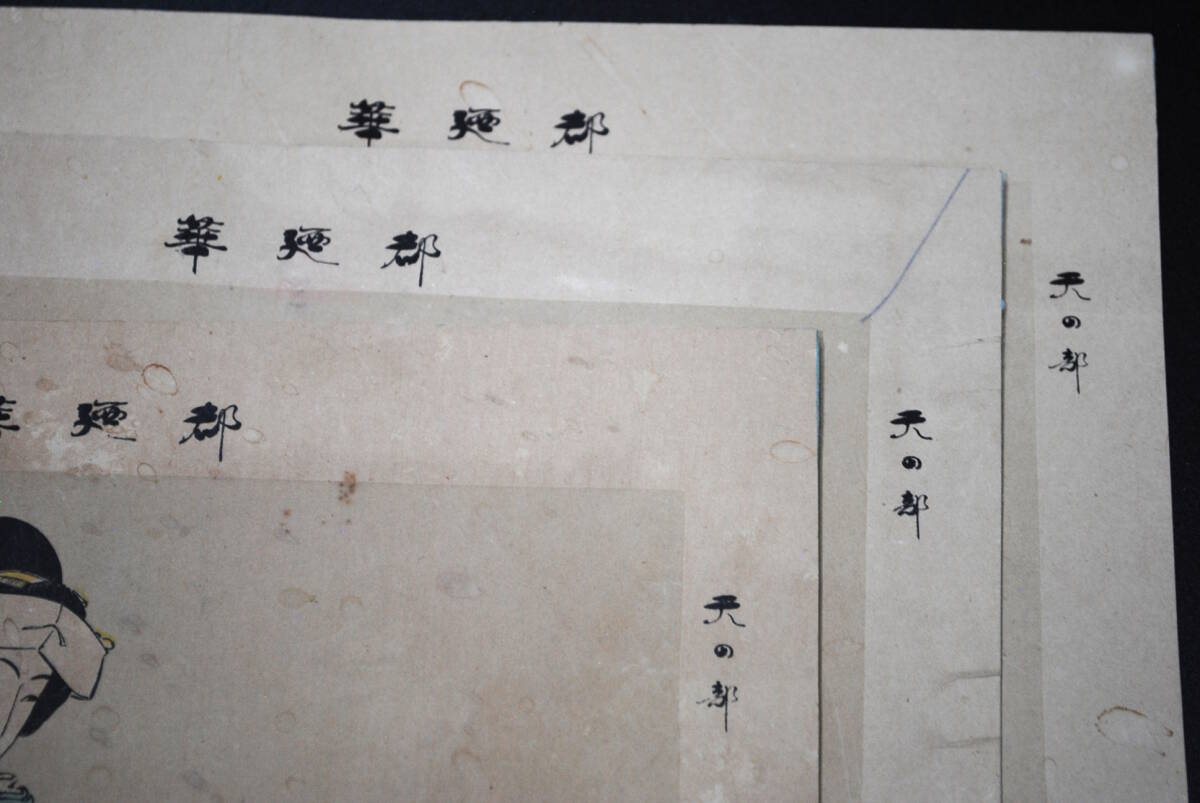 都廼華
天の部
都廼華
天の部
都廼華
天の部